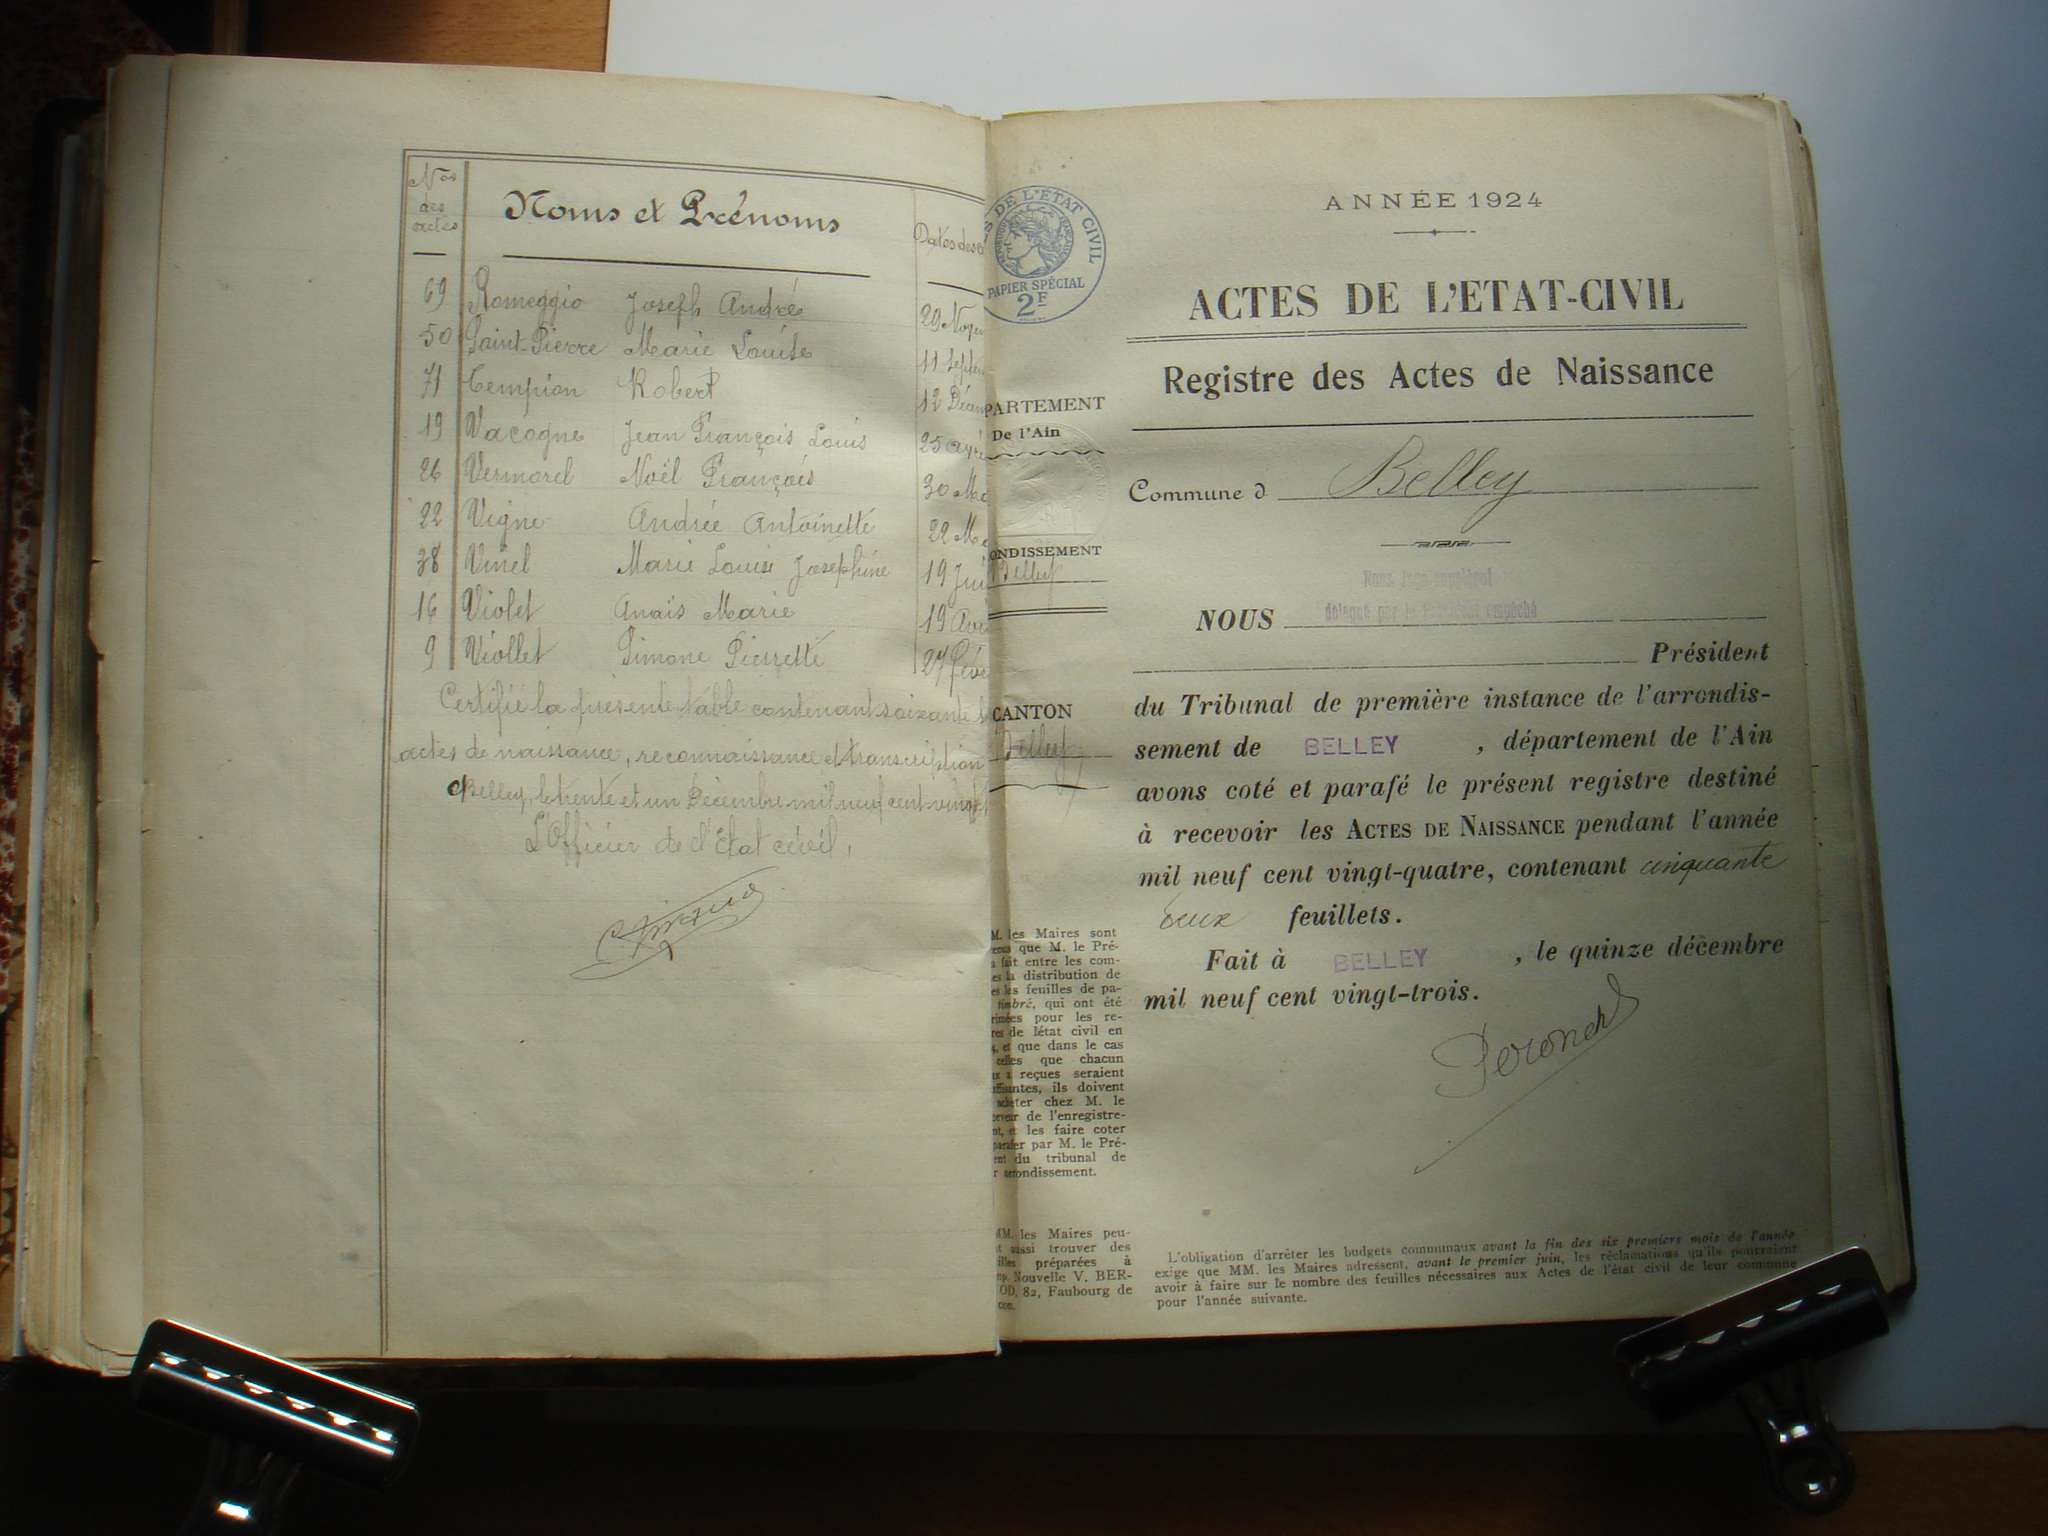 Nos des actes
Noms et Prénoms
Dates des
69 Romeggio Joseph André 29 Novem
50 Saint-Pierre Marie Louise 11 Septem
71 Tempion Robert 12 Décem
19 Vacogne Jean François Louis 25 Avri
26 Vermorel Noël François 30 Ma
22 Vigne Andrée Antoinette 22 Ma
38 Vinel Marie Louise Joséphine 19 Jui
16 Violet Anaïs Marie 19 Avri
9 Viollet Simone Pierrette 27 Févr
Certifié la présente table contenant soixante
actes de naissance, reconnaissance et transcription
Belley, le trente et un Décembre mil neuf cent vingt
L'Officier de l'Etat civil,
DE L'ÉTAT CIVIL
PAPIER SPÉCIAL
2F
PARTEMENT
De l'Ain
ONDISSEMENT
Belley
CANTON
Belley
M. les Maires sont
que M. le Pré-
fait entre les com-
la distribution de
les feuilles de pa-
timbré, qui ont été
rimées pour les re-
de létat civil en
et que dans le cas
celles que chacun
reçues seraient
ffisantes, ils doivent
acheter chez M. le
de l'enregistre-
les faire coter
parafer par M. le Pré-
du tribunal de
arrondissement.
MM. les Maires peu-
aussi trouver des
préparées à
Nouvelle V. BER-
OD, 82, Faubourg de
ANNÉE 1924
ACTES DE L'ETAT-CIVIL
Registre des Actes de Naissance
Commune d Belley
délégué par le Président empêché
NOUS
Président
du Tribunal de première instance de l'arrondis-
sement de BELLEY , département de l'Ain
avons coté et parafé le présent registre destiné
à recevoir les ACTES DE NAISSANCE pendant l'année
mil neuf cent vingt-quatre, contenant cinquante
deux feuillets.
Fait à BELLEY , le quinze décembre
mil neuf cent vingt-trois.
L'obligation d'arrêter les budgets communaux avant la fin des six premiers mois de l'année
exige que MM. les Maires adressent, avant le premier juin, les réclamations qu'ils pourraient
avoir à faire sur le nombre des feuilles nécessaires aux Actes de l'état civil de leur commune
pour l'année suivante.